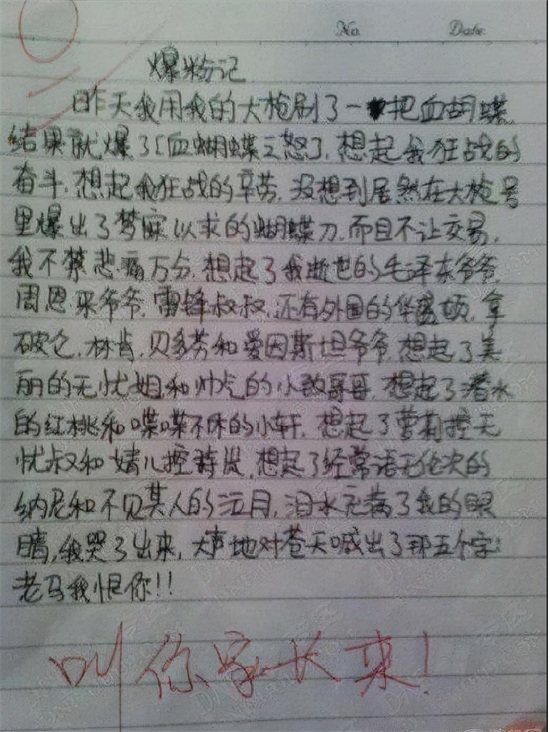 No. Date.
爆粉记
昨天我用我的大枪刷了一把血胡蝶,
结果就爆了血蝴蝶之怒了,想起我狂战的
奋斗,想起我狂战的辛苦,没想到居然在大枪号
里爆出了梦寐以求的蝴蝶刀,而且不让交易,
我不禁悲痛万分,想起了我逝世的毛泽东爷爷,
周恩来爷爷,雷锋叔叔,还有外国的华盛顿,拿
破仑,林肯,贝多芬和爱因斯坦爷爷,想起了美
丽的无忧姐和帅气的小教哥哥,想起了潜水
的红桃和喋喋不休的小轩,想起了萝莉控无
忧叔和婧儿控,想起了经常语无伦次的
纳尼和不见其人的江月,泪水充满了我的眼
睛,我哭了出来,大声地对苍天喊出了那五个字:
老马我恨你!!
叫你家长来!